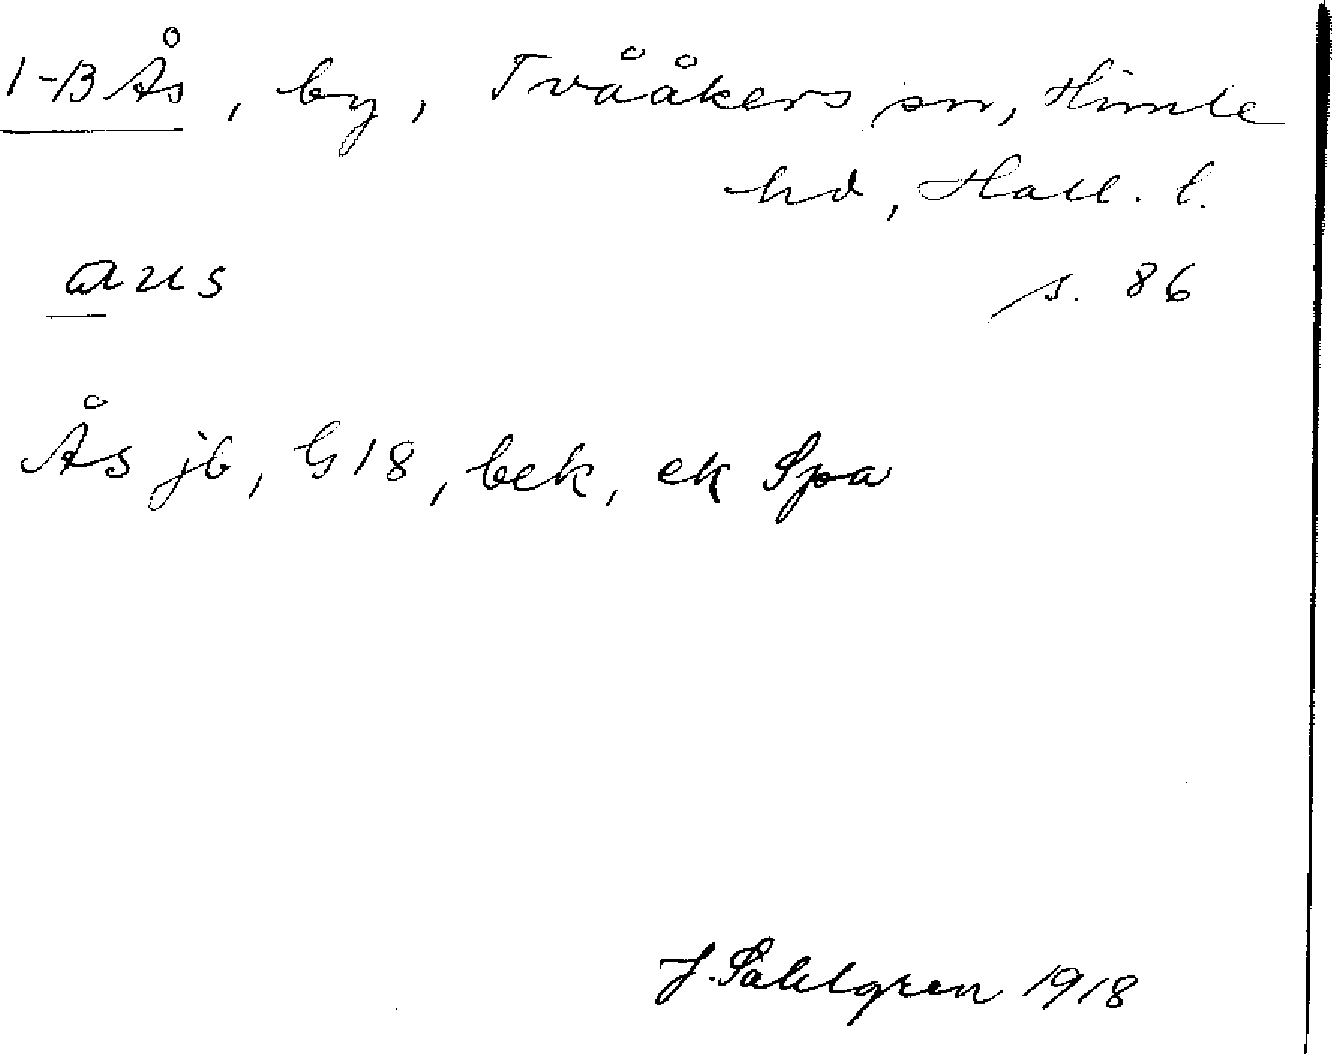 1-3 Ås, by, Tvååkers sn, Himle
hd, Hall. l.
aus
s. 86
Ås jb, G18, bek, ek Spa
J. Sahlgren 1918